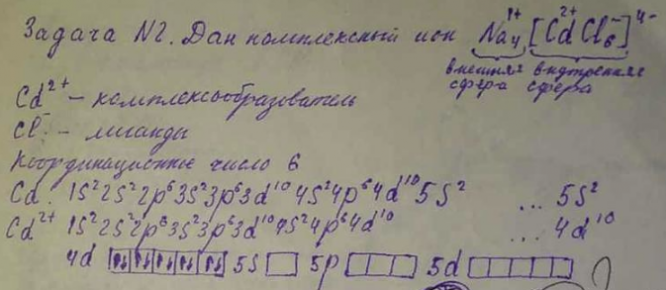 Задача N2. Дан комплексный ион Na₄¹⁺[Cd²⁺Cl₆⁻]⁴⁻
внешняя внутренняя
сфера сфера
Cd²⁺ – комплексообразователь
Cl⁻ – лиганды
Координационное число 6
Cd. 1s²2s²2p⁶3s²3p⁶3d¹⁰4s²4p⁶4d¹⁰5s² ... 5s²
Cd²⁺ 1s²2s²2p⁶3s²3p⁶3d¹⁰4s²4p⁶4d¹⁰ ... 4d¹⁰
4d ⇅ ⇅ ⇅ ⇅ ⇅ 5s 5p 5d